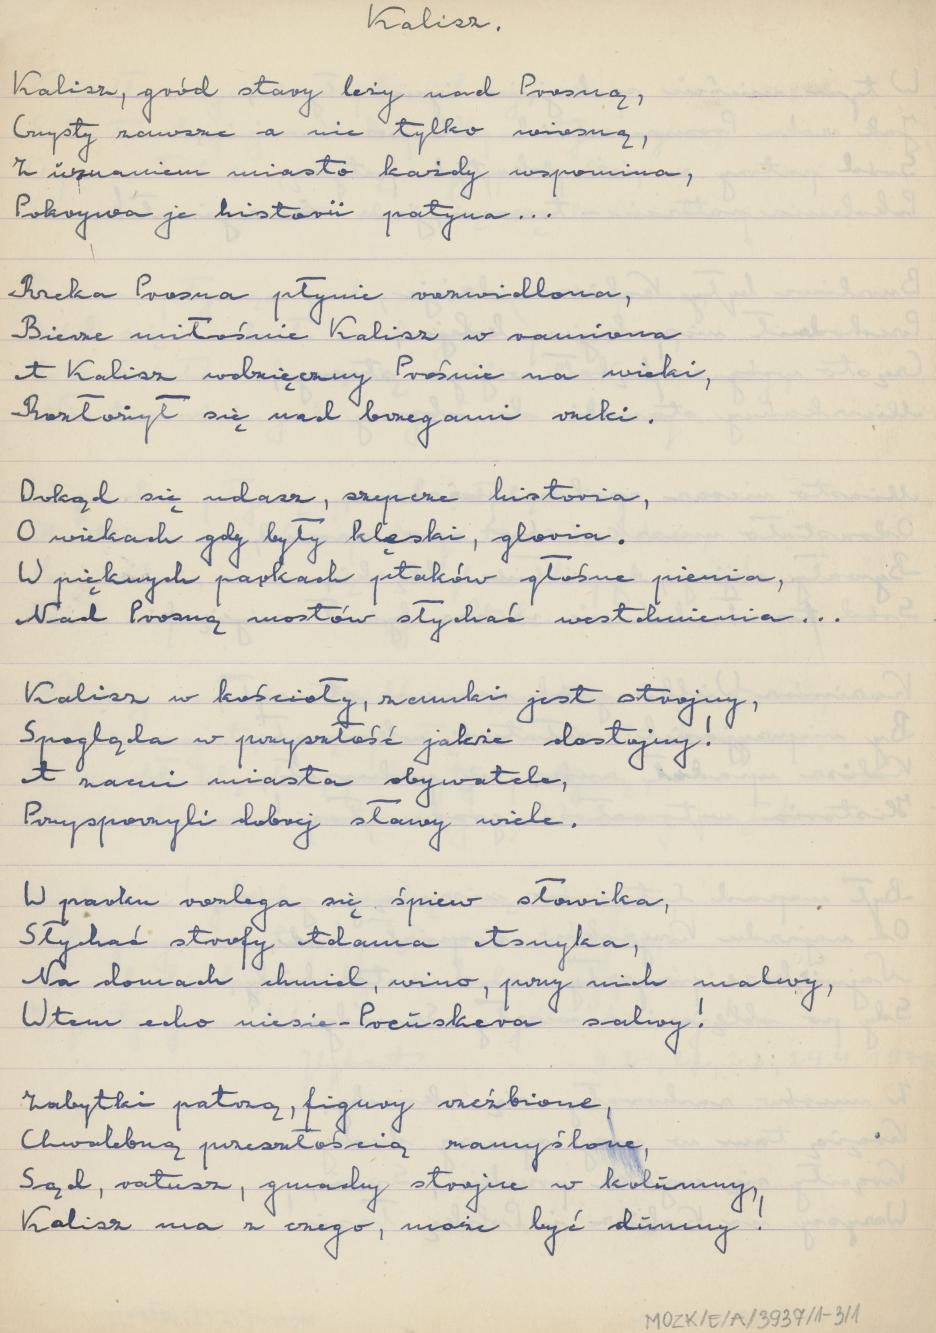 Kalisz.
Kalisz, gród stary leży nad Prosną,
Czysty zawsze a nie tylko wiosną,
Z uznaniem miasto każdy wspomina,
Pokrywa je historii patyna...
Rzeka Prosna płynie rozwidlona,
Bierze miłośnie Kalisz w ramiona
A Kalisz wdzięczny Prośnie na wieki,
Rozłożył się nad brzegami rzeki.
Dokąd się udasz, szepcze historia,
O wiekach gdy były klęski, gloria.
W pięknych parkach ptaków głośne pienia,
Nad Prosną mostów słychać westchnienia...
Kalisz w kościoły, zamki jest strojny,
Spogląda w przyszłość jakże dostojny!
A zacni miasta obywatele,
Przysporzyli dobrej sławy wiele.
W parku rozlega się śpiew słowika,
Słychać strofy Adama Asnyka,
Na domach chmiel, wino, przy nich malwy,
Wtem echo niesie-Pocüskera salwy!
Zabytki patrzą, figury rzeźbione,
Chwalebną przeszłością zamyślone,
Sąd, ratusz, gmachy strojne w kolumny,
Kalisz ma z czego, może być dumny!
MOZK/E/A/3937/1-3/1